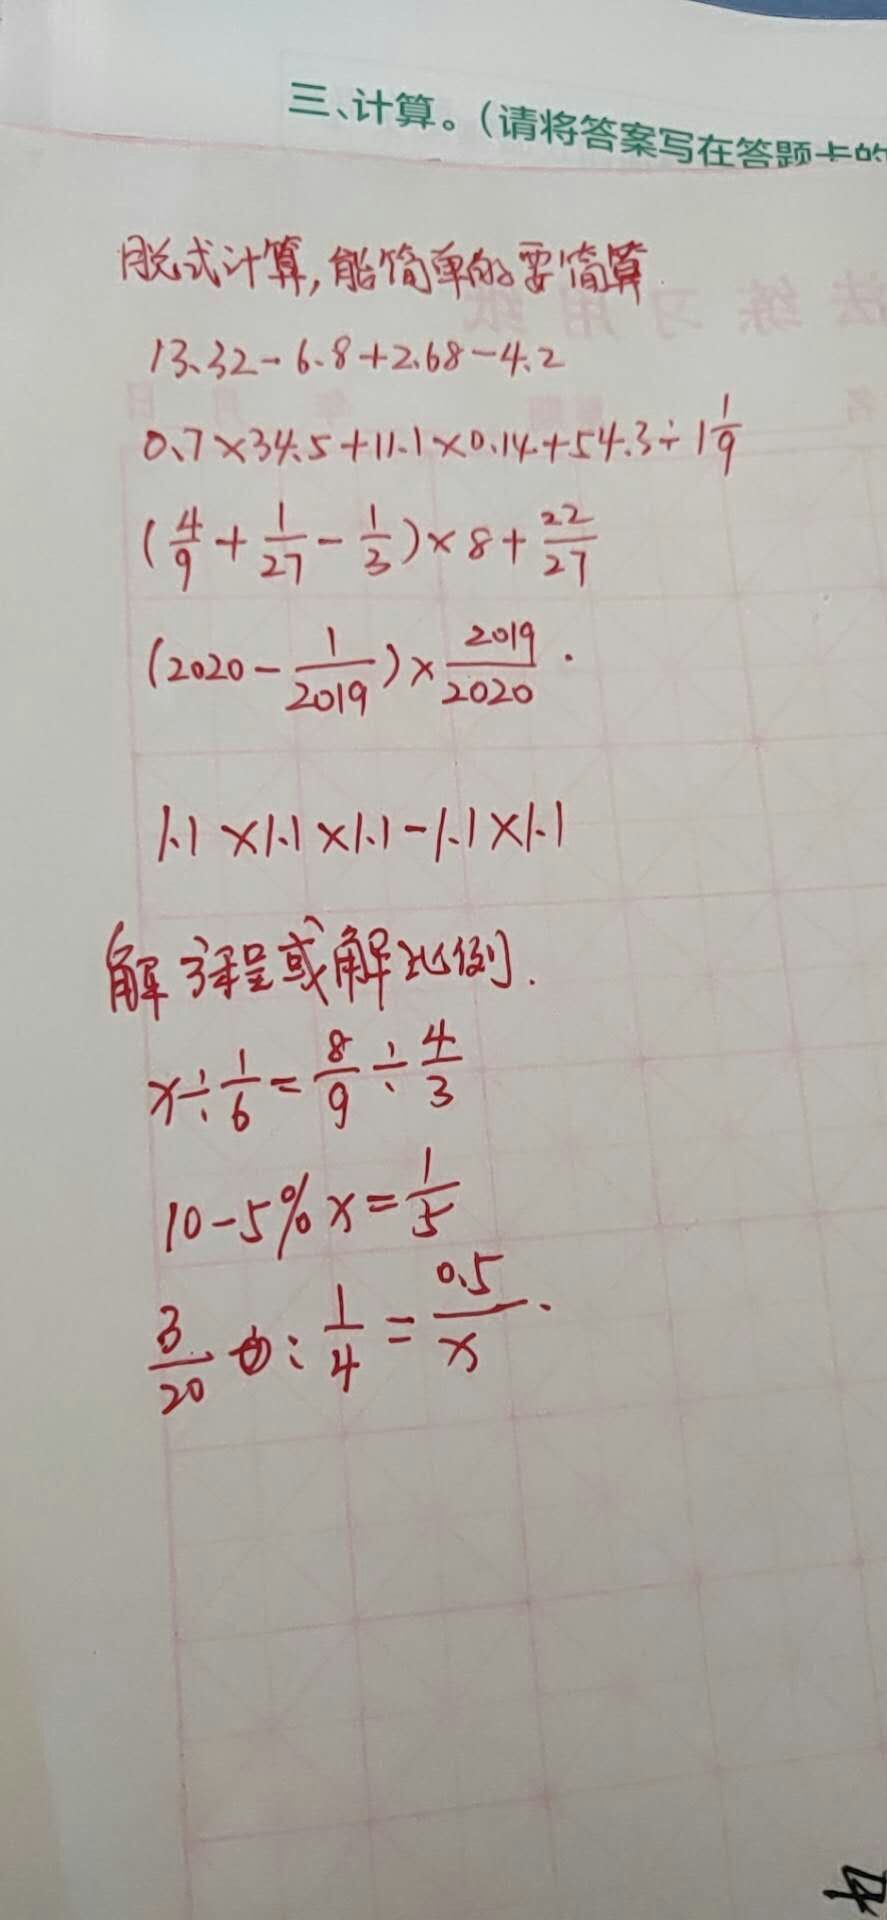 三、计算。(请将答案写在答题卡的
脱式计算,能简单的要简算.
13.32-6.8+2.68-4.2
0.7×34.5+11.1×0.14+54.3÷1 1/9
(4/9+1/27-1/3)×8+22/27
(2020-1/2019)×2019/2020.
1.1×1.1×1.1-1.1×1.1
解方程或解比例.
x÷1/6=8/9÷4/3
10-5%x=1/5
3/20:1/4=0.5/x.